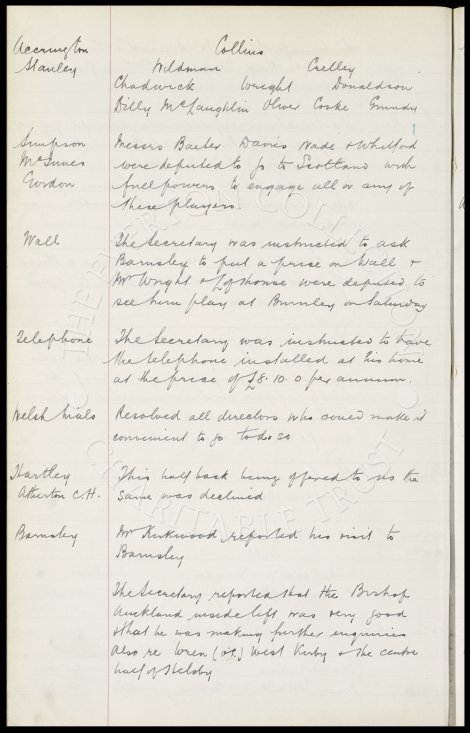 Accrington Collins
Stanley Wildman Crelley
Chadwick Wright Donaldson
Dilly McLaughlin Oliver Cooke Grundy
Simpson Messrs Baxter Davies Wade & Whitford
McInnes were deputed to go to Scotland with
Gordon full powers to engage all or any of
these players.
Wall The Secretary was instructed to ask
Barnsley to put a price on Wall &
Mr Wright & Lofthouse were deputed to
see him play at Burnley on Saturday
Telephone The Secretary was instructed to have
the telephone installed at his home
at the price of £8.10.0 per annum.
Welsh trials Resolved all directors who could make it
convenient to go to do so
Hartley This half back being offered to us the
Atherton C.H. same was declined
Barnsley Mr Kirkwood reported his visit to
Barnsley
The Secretary reported that the Bishop
Auckland inside left was very good
& that he was making further enquiries
Also re Wren West Kirby & the centre
half of Helsby
THE EVERTON COLLECTION
CHARITABLE TRUST